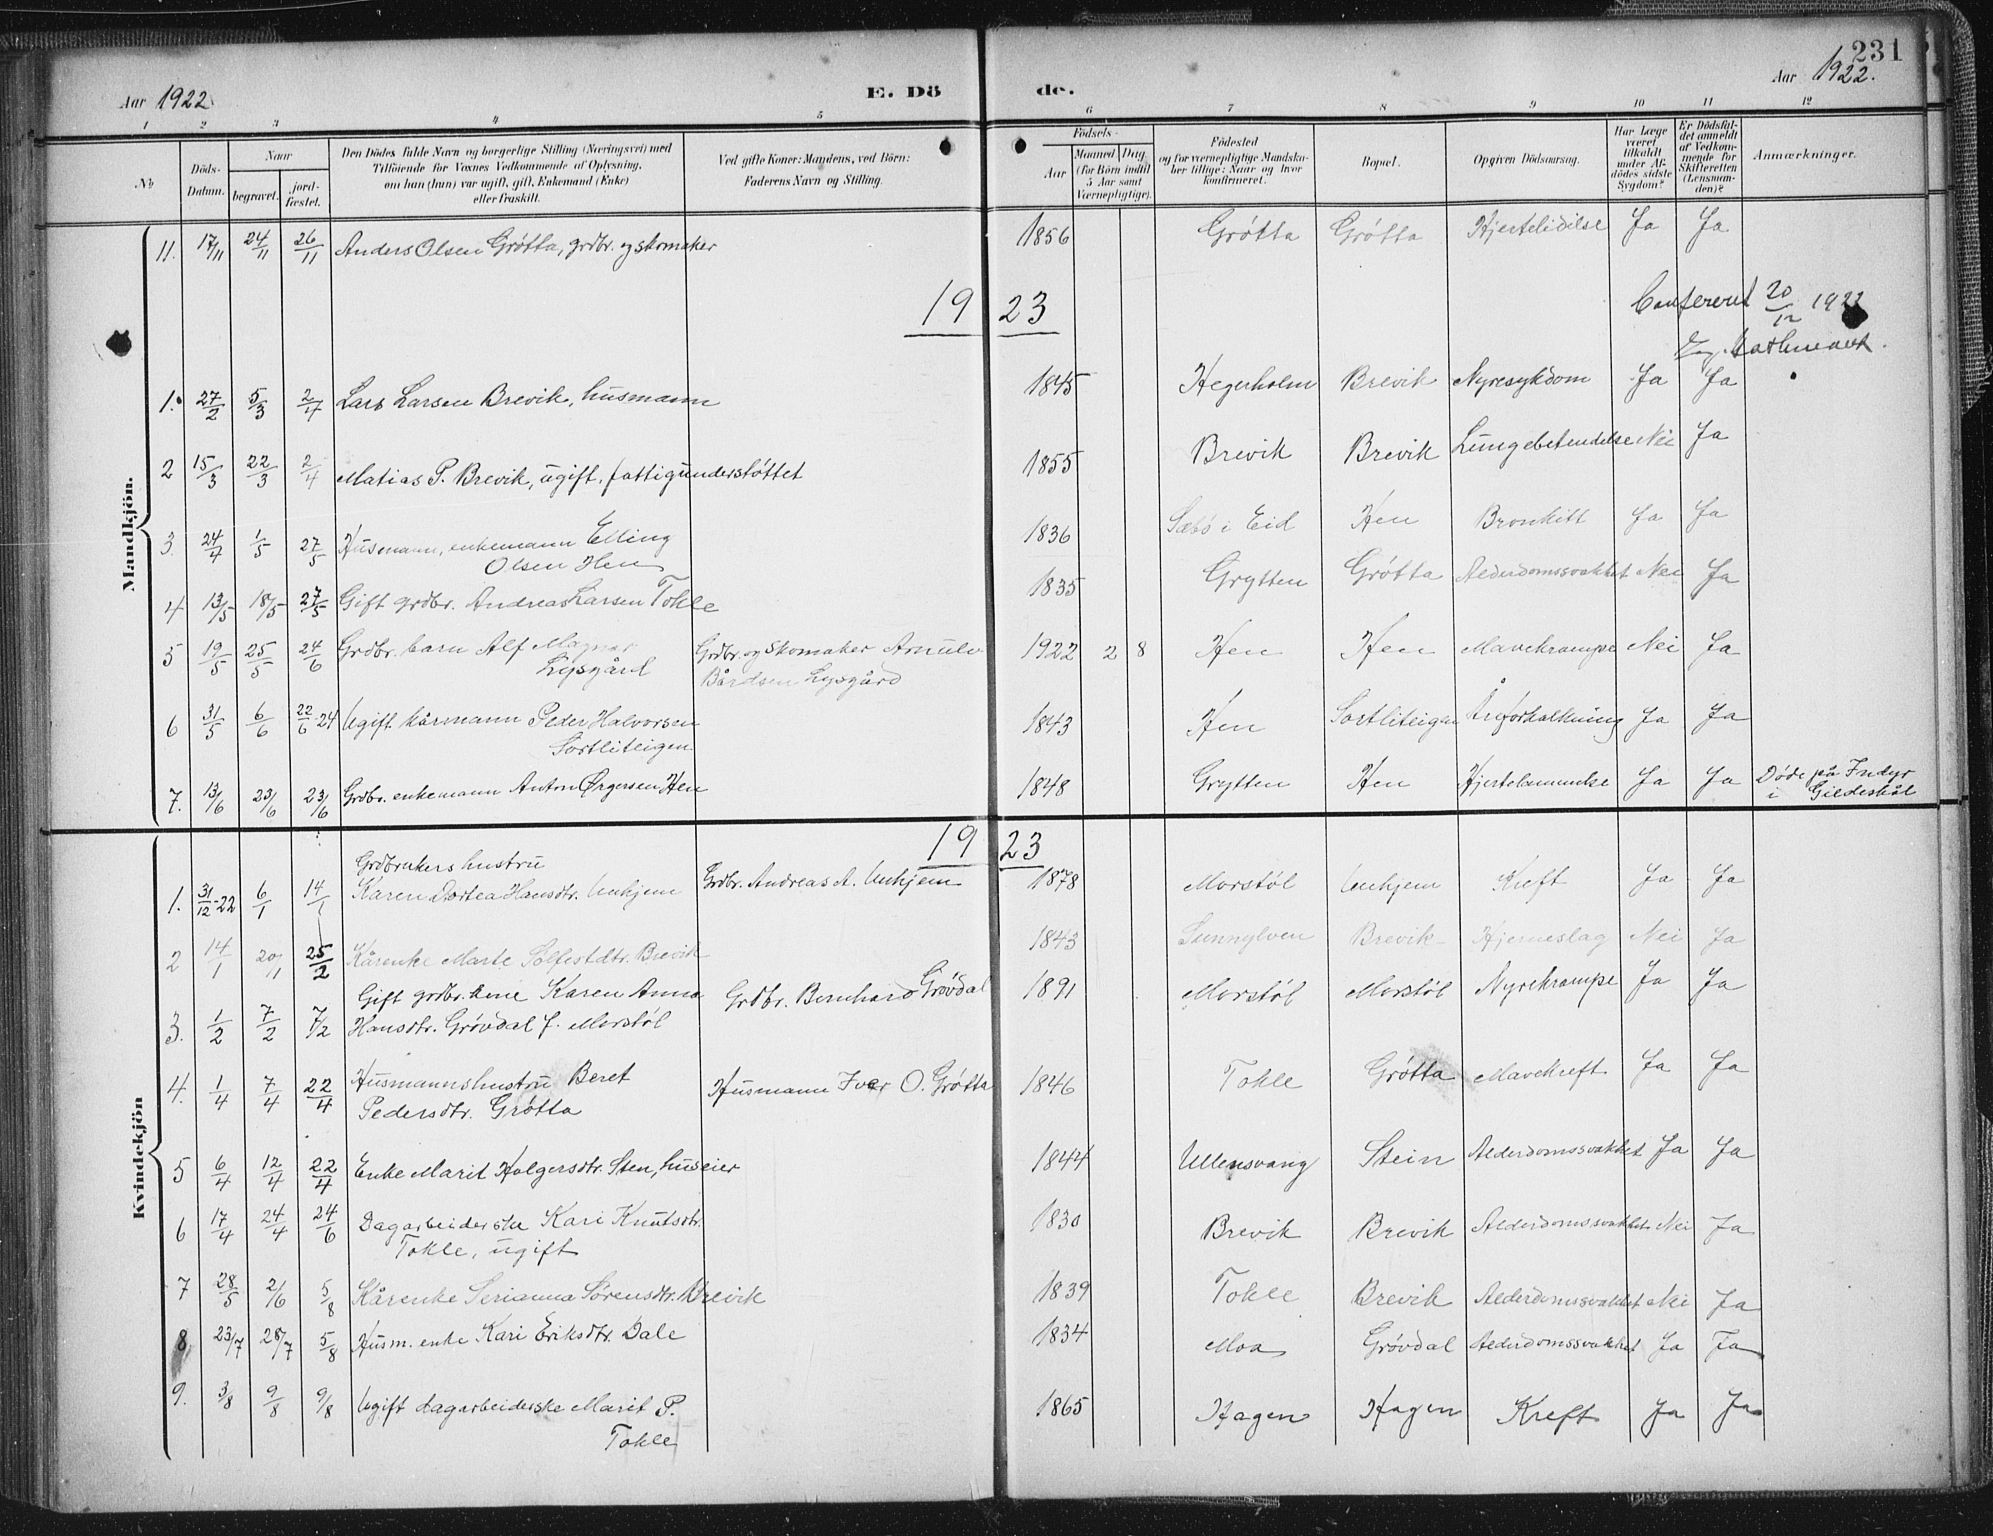 231
Aar 1922 E. Dö de. Aar 1922.
1 2 3 4 5 6 7 8 9 10 11 12
No Döds-Datum. Naar begravet. jordfæstet. Den Dödes fulde Navn og borgerlige Stilling (Næringsvei) med Tilföiende for Voxnes Vedkommende af Oplysning, om han (hun) var ugift, gift, Enkemand (Enke) eller fraskilt. Ved gifte Koner: Mandens, ved Börn: Faderens Navn og Stilling. Födsels- Aar Maaned Dag (for Börn indtil 5 Aar samt Værnepligtige). Födested og for værnepligtige Mandskaber tillige: Naar og hvor konfirmeret. Bopæl. Opgiven Dödsaarsag. Har Læge været tilkaldt under Afdödes sidste Sygdom? Er Dödsfaldet anmeldt af Vedkommende for Skifteretten (Lensmanden)? Anmærkninger.
Mandkjön.
11. 17/11 24/11 26/11 Anders Olsen Grøtta, grdbr. og skomaker 1856 Grøtta Grøtta Hjertelidelse Ja Ja
1923
Confereret 20/12 1922
1. 27/2 5/3 2/4 Lars Larsen Brevik, husmann 1845 Hegerholm Brevik Nyresykdom Ja Ja
2 15/3 22/3 2/4 Matias P. Brevik, ugift, fattigunderstøttet 1855 Brevik Brevik Lungebetendelse Nei Ja
3. 24/4 1/5 27/5 Husmann, enkemann Elling Olsen Hen 1836 Sæbø i Eid Hen Bronkitt Ja Ja
4 13/5 18/5 27/5 Gift grdbr. Andreas Larsen Tokle 1835 Grytten Grøtta Alderdomssvakhet Nei Ja
5 19/5 25/5 24/6 Grdbr. barn Alf Magnar Lysgård Grdbr. og skomaker Arnulv Bårdsen Lysgård 1922 2 8 Hen Hen Mavekrampe Nei Ja
6 31/5 6/6 22/6-24 Ugift kårmann Peder Halvorsen Sortliteigen 1843 Hen Sortliteigen Åreforkalkning Ja Ja
7. 13/6 23/6 23/6 Grdbr. enkemann Anton Ørgersen Hen 1848 Grytten Hen Hjertelammelse Ja Ja Døde på Indyr i Gildeskål
1923
Kvindekjön
1. 31/12-22 6/1 14/1 Grdbrukers hustru Karen Dortea Hansdtr. Unhjem Grdbr. Andreas A. Unhjem 1878 Morstøl Unhjem Kreft Ja Ja
2 14/1 20/1 25/2 Kårenke Marte Solfestdtr. Brevik 1843 Sunnylven Brevik Hjerneslag Nei Ja
3. 1/2 7/2 7/2 Gift grdbr. kone Karen Anna Hansdtr. Grøvdal f. Morstøl Grdbr. Bernhard Grøvdal 1891 Morstøl Morstøl Nyrekrampe Ja Ja
4. 1/4 7/4 22/4 Husmannshustru Beret Pedersdtr. Grøtta Husmann Iver O. Grøtta 1846 Tokle Grøtta Mavekreft Ja Ja
5 6/4 12/4 22/4 Enke Marit Holgersdtr. Sten, huseier 1844 Ullensvang Stein Alderdomssvakhet Ja Ja
6 17/4 24/4 24/6 Dagarbeiderske Kari Knutsdtr. Tokle, ugift 1830 Brevik Brevik Alderdomssvakhet Nei Ja
7 28/5 2/6 5/8 Kårenke Serianna Sørensdtr. Brevik 1839 Tokle Brevik Alderdomssvakhet Nei Ja
8 23/7 28/7 5/8 Husm. enke Kari Eriksdtr. Dale 1834 Moa Grøvdal Alderdomssvakhet Ja Ja
9. 3/8 9/8 9/8 Ugift dagarbeiderske Marit P. Tokle 1865 Hagen Hagen Kreft Ja Ja